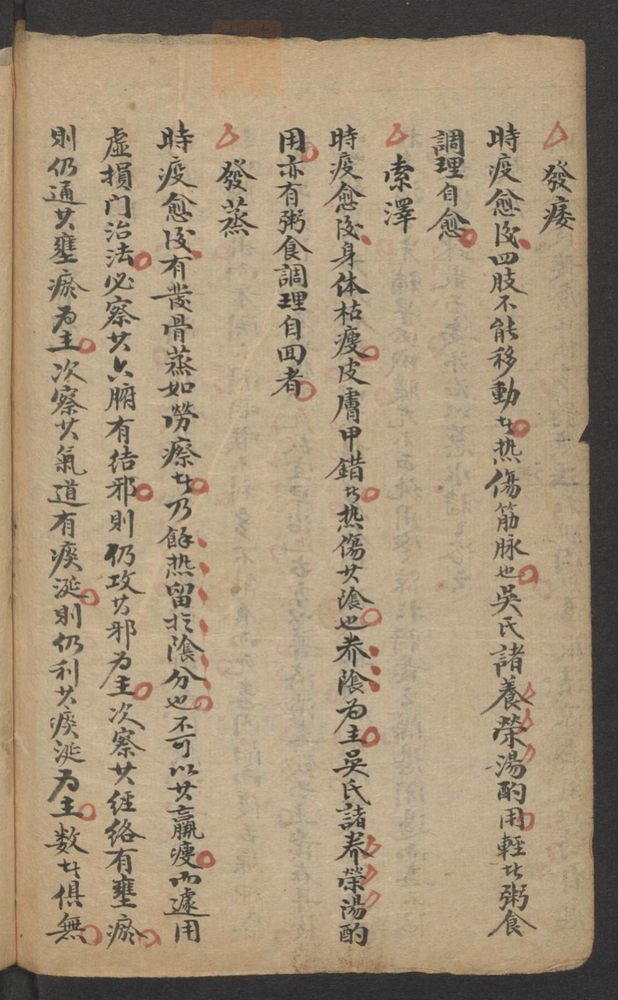 發痿
時疫愈後四肢不能移動者热傷筋脉也吳氏諸養榮湯酌用輕者粥食
調理自愈
索澤
時疫愈後身体枯瘦皮膚甲錯者热傷其陰也养陰为主吳氏諸养榮湯酌
用亦有粥食調理自回者
發蒸
時疫愈後有發骨蒸如勞瘵者乃餘热留於陰分也不可以其羸瘦而遽用
虛損门治法必察其六腑有结邪則仍攻其邪为主次察其經络有壅瘀
則仍通其壅瘀为主次察其氣道有痰涎則仍利其痰涎为主数者俱無